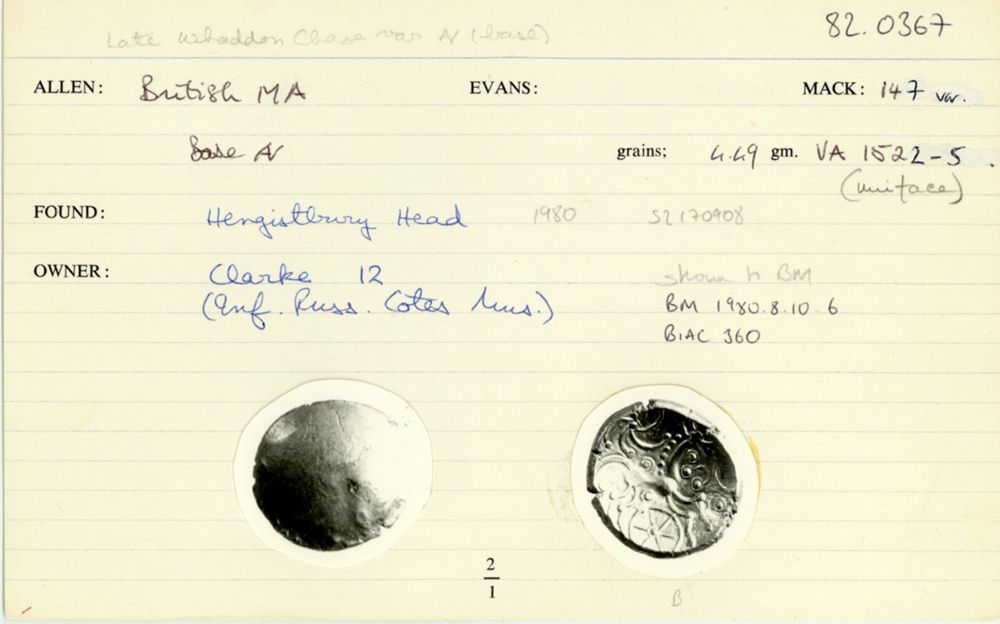 82.0367
Late Whaddon Chase var N (base)
ALLEN: British MA EVANS: MACK: 147 var.
Base N grains; 4.49 gm. VA 1522-5.
(uniface)
FOUND: Hengistbury Head 1980? SZ170908
OWNER: Clarke 12 shown to BM
(Inf. Russ. Cotes Mus.) BM 1980.8.10.6
BIAC 360
2
1
B